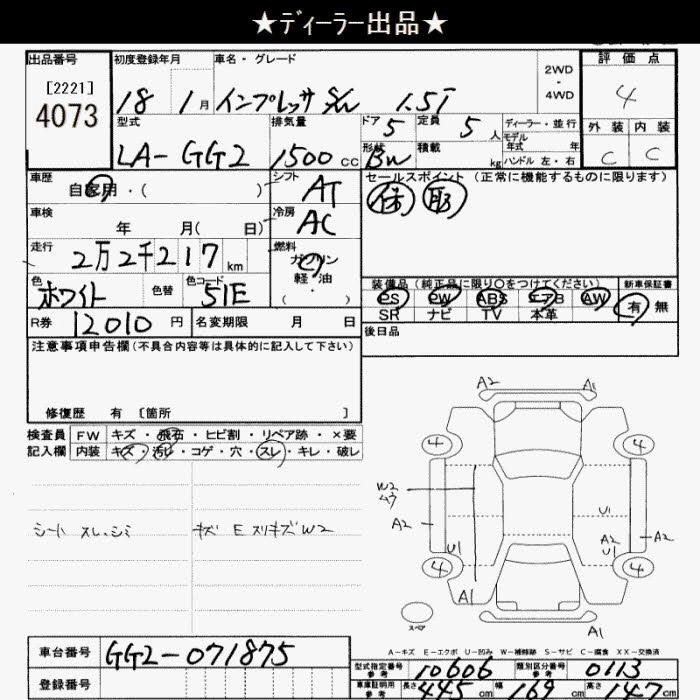 ★ディーラー出品★
出品番号 初度登録年月 車名・グレード 2WD・4WD 評価点
[2221]
4073
18 1月 インプレッサ S/W 1.5i 4
型式 排気量 ドア 5 定員 5人 ディーラー・並行 外装 内装
モデル年式 年
LA-GG2 1500cc 形状 BW 積載 kg ハンドル 左・右 C C
車歴 自家用・( ) シフト AT セールスポイント (正常に機能するものに限ります)
保 取
車検 年 月( 日) 冷房 AC
走行 2万2千217km 燃料 ガソリン
軽・油
( ・ )
色 ホワイト 色替 色コード 51E
装備品 (純正品に限り○をつけてください) 新車保証書
PS PW ABS エアB AW 有 無
SR ナビ TV 本革
R券 12010円 名変期限 月 日 後日品
注意事項申告欄 (不具合内容等は具体的に記入して下さい)
修復歴 有 [箇所 ]
検査員 FW キズ・飛石・ヒビ割・リペア跡・×要
記入欄 内装 キズ・汚レ・コゲ・穴・スレ・キレ・破レ
シート スレ、シミ
キズ E スリキズ W2
A2 A1
4 4
W2
ムラ
A2 U1 A2
U1 A2
U1
4 4
A1
スペア A1
A−キズ E−エクボ U−凹み W−補修跡 S−サビ C−腐食 XX−交換済
車台番号 GG2-071875
型式指定番号 参考 10606 類別区分番号 参考 0113
登録番号
車庫証明用 参考 長さ 445cm 幅 169cm 高さ 147cm